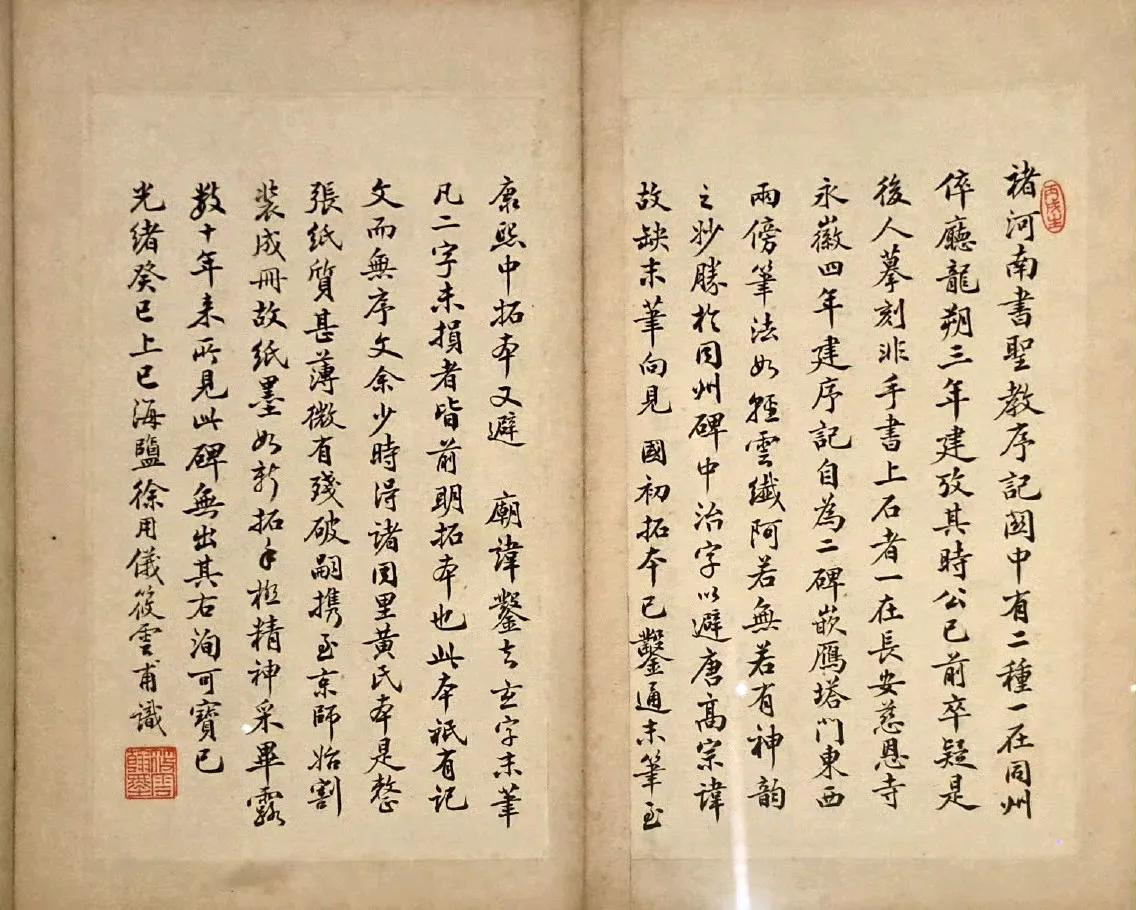 褚河南書聖教序記關中有二種一在同州
倅廳龍朔三年建攷其時公已前卒疑是
後人摹刻非手書上石者一在長安慈恩寺
永徽四年建序記自為二碑嵌鴈塔門東西
兩傍筆法如輕雲纖阿若無若有神韻
之妙勝於同州碑中治字以避唐高宗諱
故缺末筆向見 國初拓本已鑿通末筆至
康熙中拓本又避 廟諱鑿去玄字末筆
凡二字未損者皆前明拓本也此本祇有記
文而無序文余少時得諸同里黃氏本是整
張紙質甚薄微有殘破嗣攜至京師始割
裝成冊故紙墨如新拓手極精神采畢露
數十年来所見此碑無出其右洵可寶已
光緒癸巳上巳海鹽徐用儀筱雲甫識
丙戌生